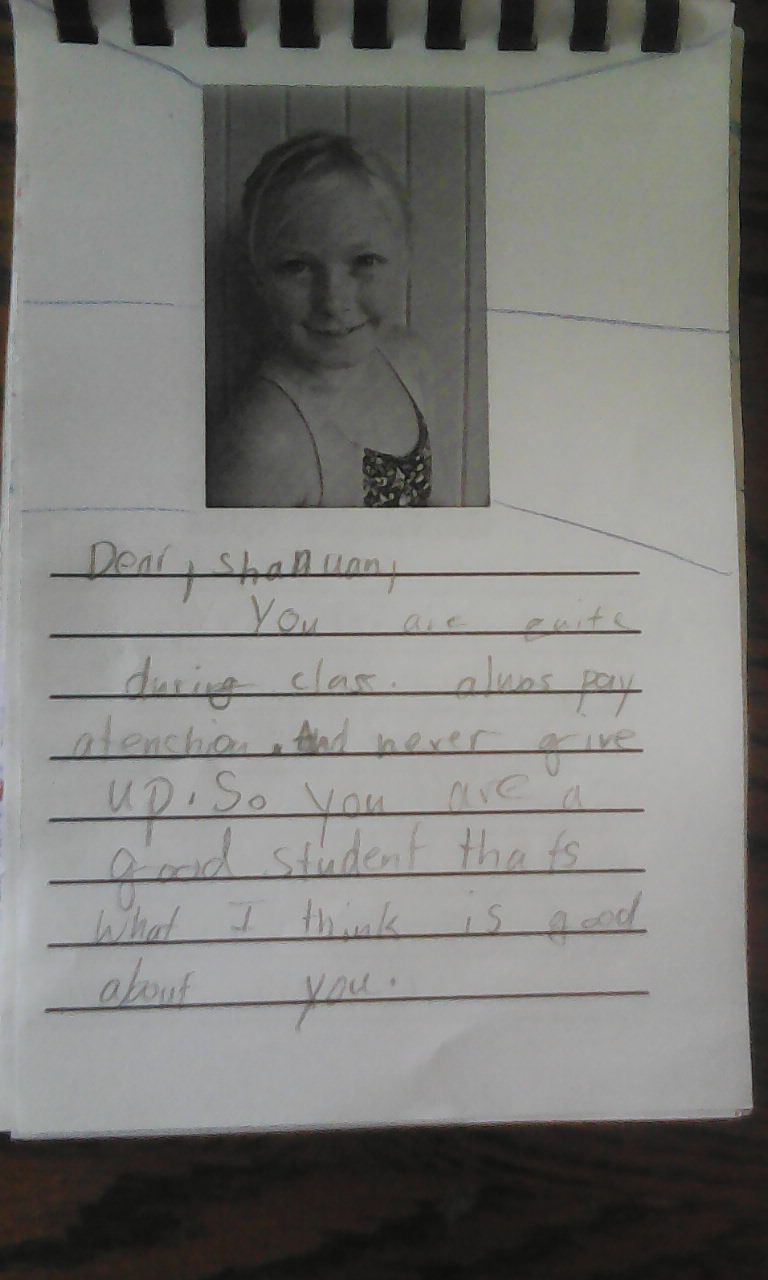 Dear, shannan,
You are quite
during class. alwas pay
atenchion. And never give
up. So you are a
good student thats
what I think is good
about you.